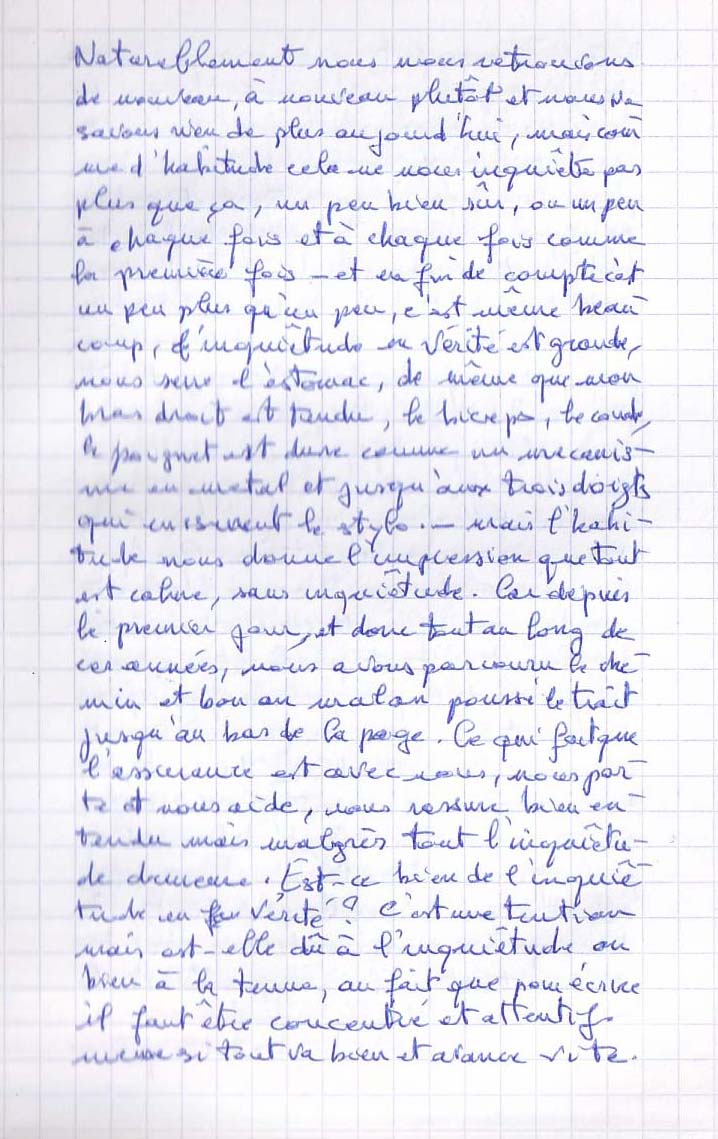 Naturellement nous nous retrouvons
de nouveau, à nouveau plutôt et nous ne
savons rien de plus aujourd'hui, mais com
me d'habitude cela ne nous inquiète pas
plus que ça, un peu bien sûr, ou un peu
à chaque fois et à chaque fois comme
la première fois — et en fin de compte c'est
un peu plus qu'un peu, c'est même beau
coup, l'inquiétude en vérité est grande,
nous serre l'estomac, de même que mon
bras droit est tendu, le biceps, le coude,
le poignet est dure comme un mécanis-
me en métal et jusqu'aux trois doigts
qui enserrent le stylo. — mais l'habi-
tude nous donne l'impression que tout
est calme, sans inquiétude. Car depuis
le premier jour, et donc tout au long de
ces années, nous avons parcouru le che-
min et bon an malan poussé le trait
jusqu'au bas de la page. Ce qui fait que
l'assurance est avec nous, nous por-
te et nous aide, nous rassure bien en-
tendu mais malgrès tout l'inquiétu-
de demeure. Est-ce bien de l'inquié
tude en vérité ? C'est une tention
mais est-elle dû à l'inquiétude ou
bien à la tenue, au fait que pour écrire
il faut être concentré et attentif
même si tout va bien et avance vite.